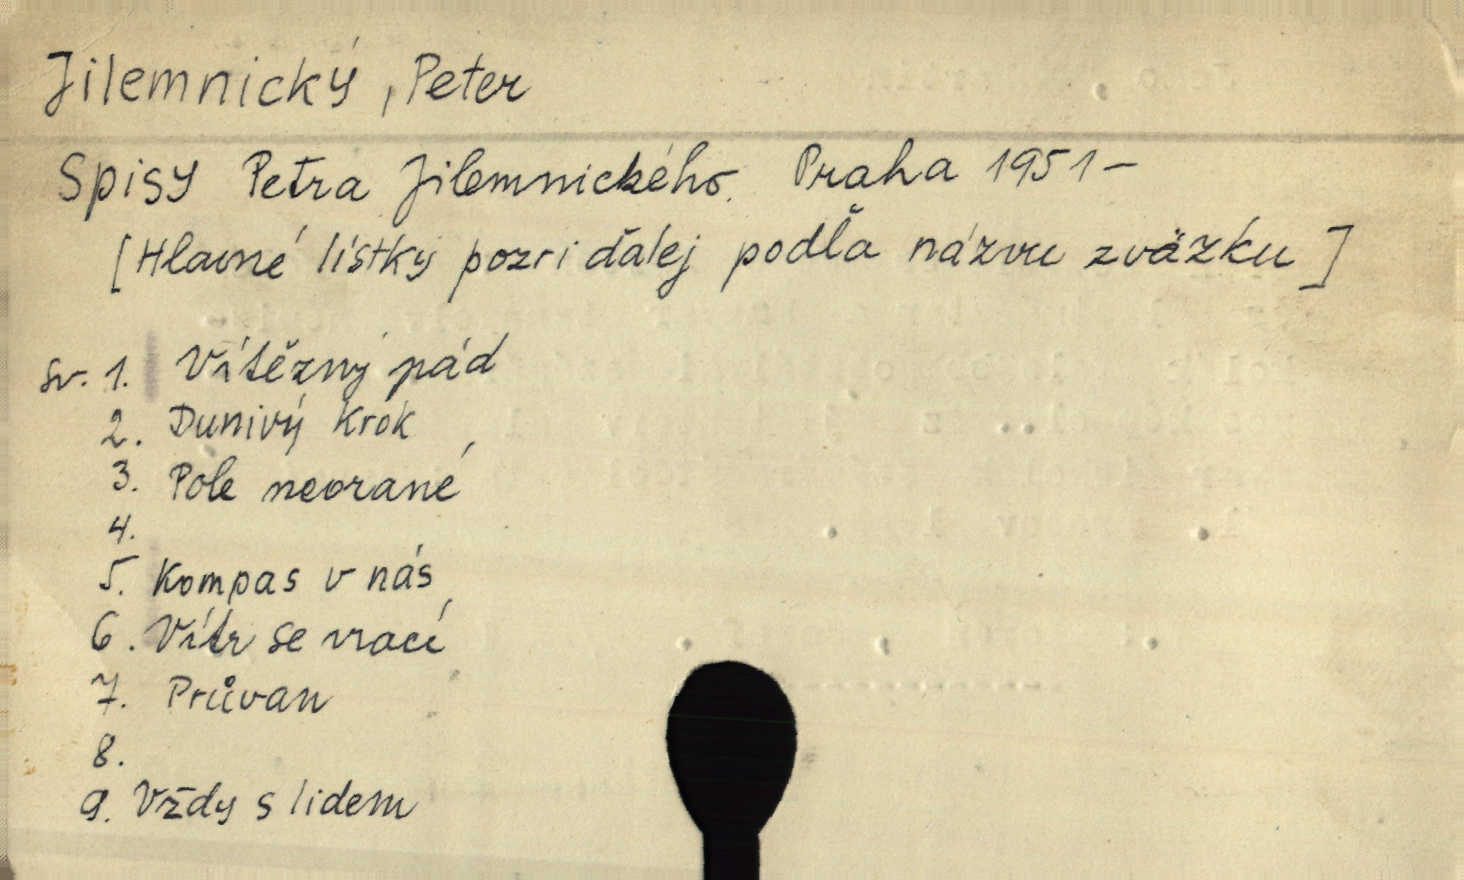 Jilemnický, Peter
Spisy Petra Jilemnického. Praha 1951-
[Hlavné lístky pozri ďalej podľa názvu zväzku]
sv. 1. Vítězný pád
2. Dunivý krok
3. Pole neorané
4.
5. Kompas v nás
6. Vítr se vrací
7. Průvan
8.
9. Vždy s lidem